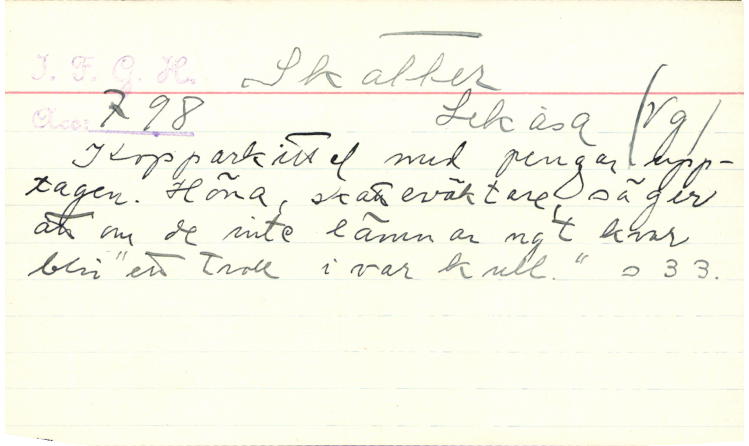 I. F. G. H. Skatter
Acc: 798 Lekåsa (Vg)
Kopparkittel med pengar upp-
tagen. Höna, skatteväktare, säger
att om de inte lämnar ngt kvar
blir "ett troll i var kull." s 33.